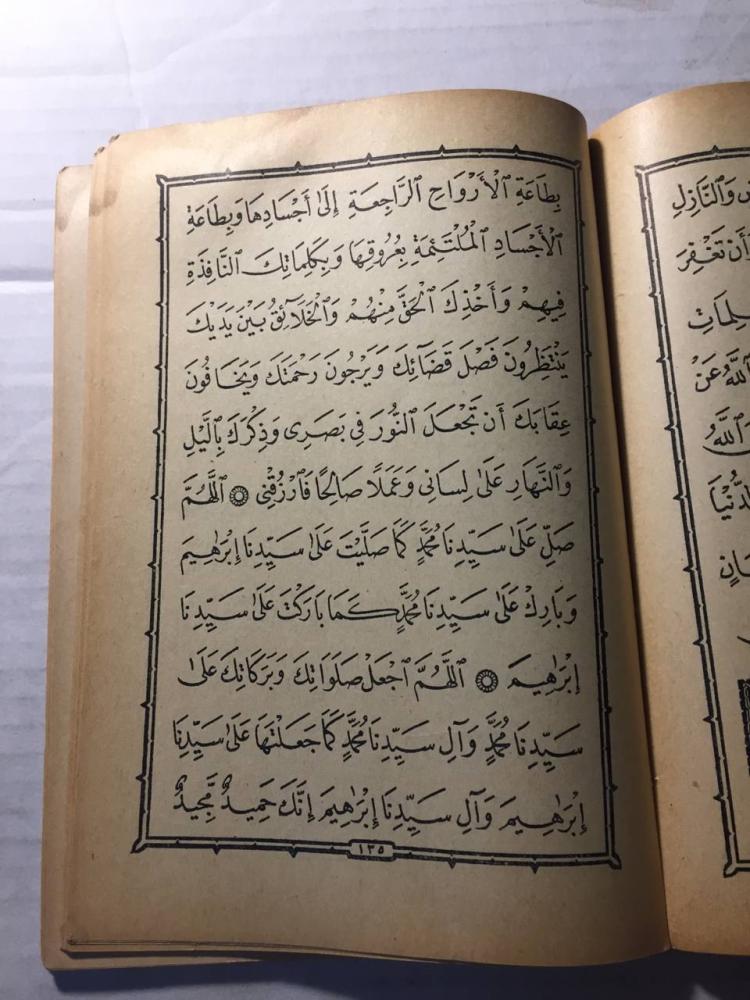 بِطَاعَةِ ٱلْأَرْوَاحِ ٱلرَّاجِعَةِ إِلَىٰ أَجْسَادِهَا وَبِطَاعَةِ
ٱلْأَجْسَادِ ٱلْمُلْتَئِمَةِ بِعُرُوقِهَا وَبِكَلِمَاتِكَ ٱلنَّافِذَةِ
فِيهِمْ وَأَخْذِكَ ٱلْحَقَّ مِنْهُمْ وَٱلْخَلَآئِقُ بَيْنَ يَدَيْكَ
يَنْتَظِرُونَ فَصْلَ قَضَآئِكَ وَيَرْجُونَ رَحْمَتَكَ وَيَخَافُونَ
عِقَابَكَ أَن تَجْعَلَ ٱلنُّورَ فِى بَصَرِى وَذِكْرَكَ بِٱلَّيْلِ
وَٱلنَّهَارِ عَلَىٰ لِسَانِى وَعَمَلًا صَالِحًا فَٱرْزُقْنِى ۞ ٱللَّهُمَّ
صَلِّ عَلَىٰ سَيِّدِنَا مُحَمَّدٍ كَمَا صَلَّيْتَ عَلَىٰ سَيِّدِنَا إِبْرَٰهِيمَ
وَبَارِكْ عَلَىٰ سَيِّدِنَا مُحَمَّدٍ كَمَا بَارَكْتَ عَلَىٰ سَيِّدِنَا
إِبْرَٰهِيمَ ۞ ٱللَّهُمَّ ٱجْعَلْ صَلَوَاتِكَ وَبَرَكَاتِكَ عَلَىٰ
سَيِّدِنَا مُحَمَّدٍ وَآلِ سَيِّدِنَا مُحَمَّدٍ كَمَا جَعَلْتَهَا عَلَىٰ سَيِّدِنَا
إِبْرَٰهِيمَ وَآلِ سَيِّدِنَا إِبْرَٰهِيمَ إِنَّكَ حَمِيدٌ مَّجِيدٌ
١٣٥
وَٱلنَّازِلِ
أَن تَغْفِرَ
ٱللَّهُ عَنْ
ٱللَّهُ